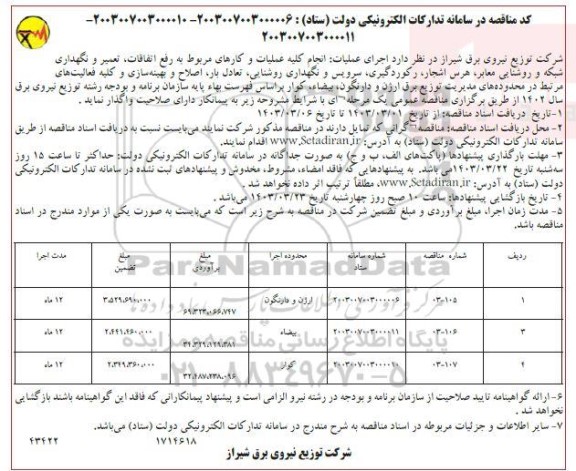 کد مناقصه در سامانه تدارکات الکترونیکی دولت (ستاد) : ۲۰۰۳۰۰۷۰۰۳۰۰۰۰۰۶-۲۰۰۳۰۰۷۰۰۳۰۰۰۰۱۰-
۲۰۰۳۰۰۷۰۰۳۰۰۰۰۱۱
شرکت توزیع نیروی برق شیراز در نظر دارد اجرای عملیات: انجام کلیه عملیات و کارهای مربوط به رفع اتفاقات، تعمیر و نگهداری
شبکه و روشنایی معابر، هرس اشجار، رکوردگیری، سرویس و نگهداری روشنایی، تعادل بار، اصلاح و بهینه‌سازی و کلیه فعالیت‌های
مرتبط در محدوده‌های مدیریت توزیع برق ارژن و دارنگون، بیضاء، کوار براساس فهرست بهاء پایه سازمان برنامه و بودجه رشته توزیع نیروی برق
سال ۱۴۰۲ از طریق برگزاری مناقصه عمومی یک مرحله ای با شرایط مشروحه زیر به پیمانکار دارای صلاحیت واگذار نماید .
۱- تاریخ دریافت اسناد مناقصه: از تاریخ ۱۴۰۳/۰۳/۰۱ تا تاریخ ۱۴۰۳/۰۳/۰۶
۲- محل دریافت اسناد مناقصه: مناقصه گرانی که تمایل دارند در مناقصه مذکور شرکت نمایند می‌بایست نسبت به دریافت اسناد مناقصه از طریق
سامانه تدارکات الکترونیکی دولت (ستاد) به آدرس: www.Setadiran.ir اقدام نمایند.
۳- مهلت بارگذاری پیشنهادها (پاکت‌های الف، ب و ج) به صورت جداگانه در سامانه تدارکات الکترونیکی دولت: حداکثر تا ساعت ۱۵ روز
سه‌شنبه تاریخ ۱۴۰۳/۰۳/۲۲ می‌باشد. به پیشنهادهایی که فاقد امضاء، مشروط، مخدوش و پیشنهادهای ثبت نشده در سامانه تدارکات الکترونیکی
دولت (ستاد) به آدرس: www.Setadiran.ir، مطلقاً ترتیب اثر داده نخواهد شد.
۴- تاریخ بازگشایی پیشنهادها: ساعت ۱۰ صبح روز چهارشنبه تاریخ ۱۴۰۳/۰۳/۲۳ می‌باشد .
۵- مدت زمان اجرا، مبلغ برآوردی و مبلغ تضمین شرکت در مناقصه به شرح زیر است که می‌بایست به صورت یکی از موارد مندرج در اسناد
مناقصه باشد.
ردیف شماره مناقصه شماره سامانه ستاد محدوده اجرا مبلغ برآوردی مبلغ تضمین مدت اجرا
۱ ۰۳-۱۰۵ ۲۰۰۳۰۰۷۰۰۳۰۰۰۰۰۶ ارژن و دارنگون ۶۹.۳۲۳.۰۶۶.۷۴۷ ۳.۵۲۹.۶۹۰.۰۰۰ ۱۲ ماه
۳ ۰۳-۱۰۶ ۲۰۰۳۰۰۷۰۰۳۰۰۰۰۱۱ بیضاء ۲.۴۴۱.۴۶۰.۰۰۰ ۱۲ ماه
۴ ۰۳-۱۰۷ ۲۰۰۳۰۰۷۰۰۳۰۰۰۰۱۰ کوار ۳۲.۴۸۷.۴۳۸.۰۹۶ ۲.۳۴۹.۳۶۰.۰۰۰ ۱۲ ماه
۶- ارائه گواهینامه تایید صلاحیت از سازمان برنامه و بودجه در رشته نیرو الزامی است و پیشنهاد پیمانکارانی که فاقد این گواهینامه باشند بازگشایی
نخواهد شد .
۷- سایر اطلاعات و جزئیات مربوطه در اسناد مناقصه به شرح مندرج در سامانه تدارکات الکترونیکی دولت (ستاد) می‌باشد.
۱۷۱۴۶۱۸ ۴۳۴۲۲
شرکت توزیع نیروی برق شیراز
ParsNamadData
پایگاه اطلاع رسانی مناقصه و مزایده
۰۲۱-۸۸۳۴۹۶۷۰-۵